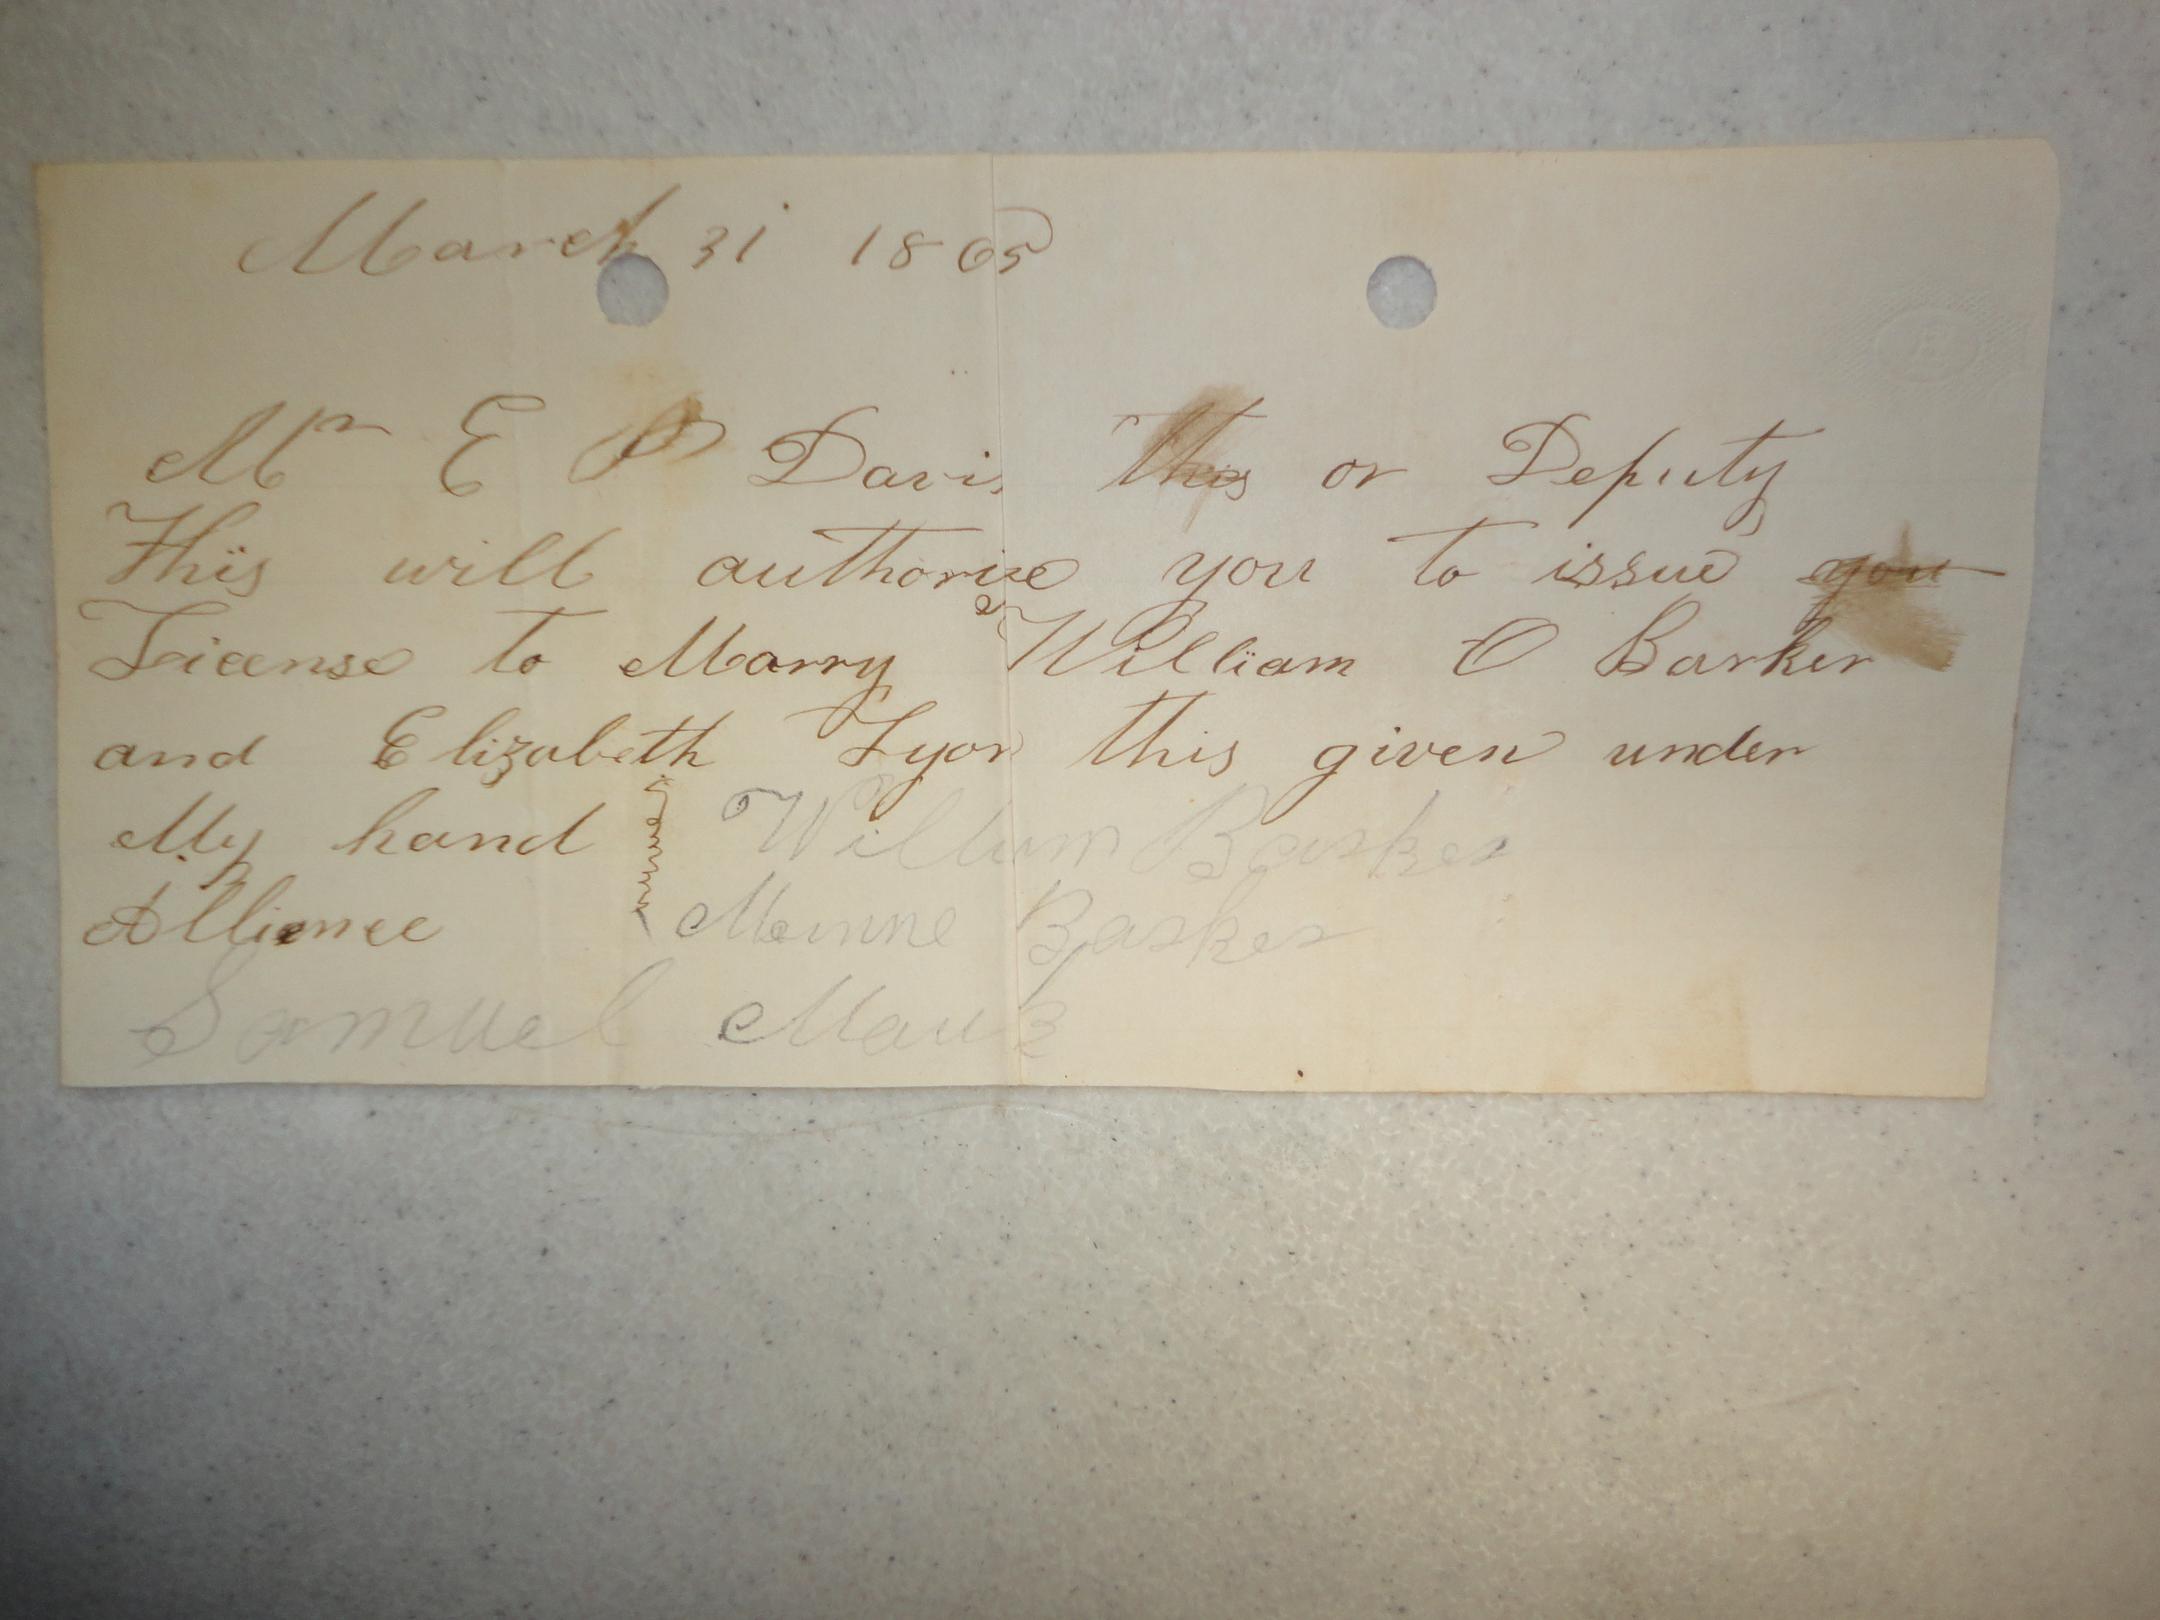 March 31 1865
Mr E P Davis this or Deputy
This will authorise you to issue you
License to Marry William O Barker
and Elizabeth Lyon this given under
My hand William Barker
Allienee Meinne Barker
Samuel Mauk